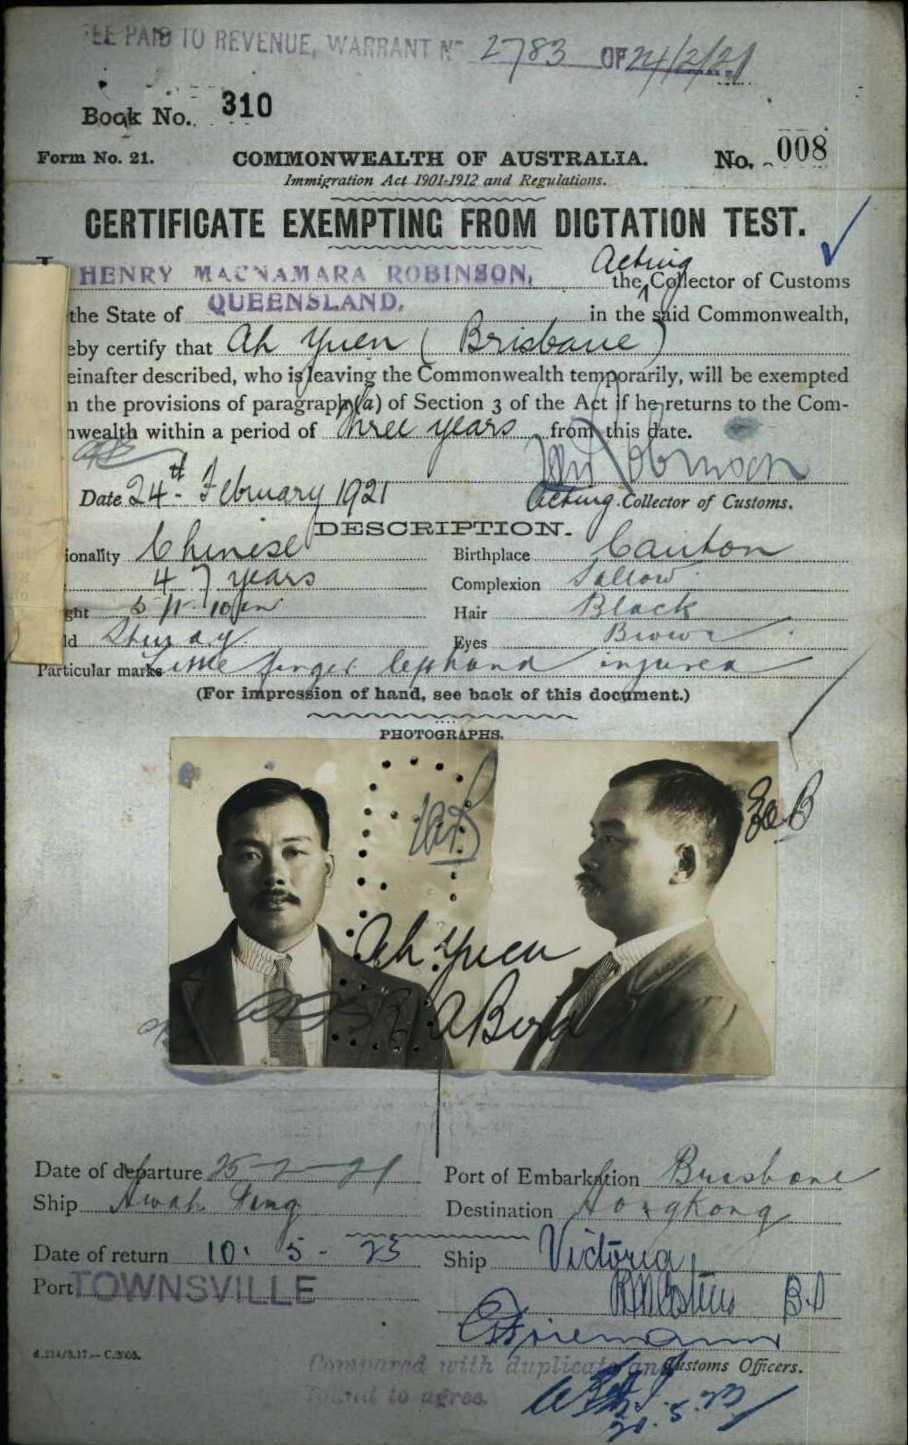 FEE PAID TO REVENUE, WARRANT No 2783 OF 24/2/21
Book No. 310
Form No. 21. COMMONWEALTH OF AUSTRALIA. No. 008
Immigration Act 1901-1912 and Regulations.
CERTIFICATE EXEMPTING FROM DICTATION TEST.
HENRY MACNAMARA ROBINSON, the Acting Collector of Customs
the State of QUEENSLAND. in the said Commonwealth,
eby certify that Ah Yuen (Brisbane)
einafter described, who is leaving the Commonwealth temporarily, will be exempted
n the provisions of paragraph (a) of Section 3 of the Act if he returns to the Com-
nwealth within a period of three years from this date.
Date 24th February 1921 Acting Collector of Customs.
DESCRIPTION.
ionality Chinese Birthplace Canton
47 years Complexion Sallow
ght Hair Black
ld Sturdy Eyes Brown
Particular marks Little finger left hand injured
(For impression of hand, see back of this document.)
PHOTOGRAPHS.
Ah Yuen
Date of departure 25-2-21 Port of Embarkation Brisbane
Ship Hwah Ping Destination Hongkong
Date of return 10. 5. 23 Ship Victoria
Port TOWNSVILLE
Customs Officers.
Compared with duplicate and
found to agree.